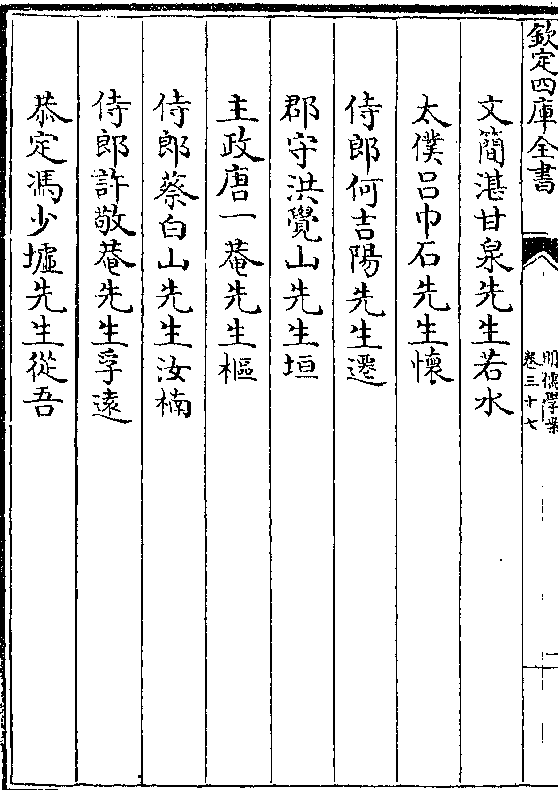 欽定四庫全書
明儒學案
卷三十七
一
文簡湛甘泉先生若水
太僕呂巾石先生懷
侍郎何吉陽先生遷
郡守洪覺山先生垣
主政唐一菴先生樞
侍郎蔡白山先生汝楠
侍郎許敬菴先生孚遠
恭定馮少墟先生從吾